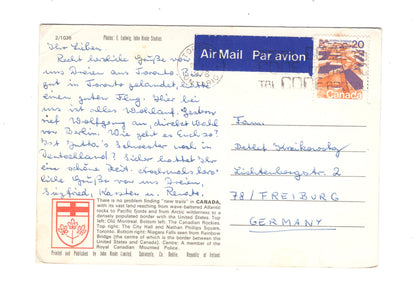 2/1035
Photos: E. Ludwig, John Hinde Studios.
Ihr Lieben.
Recht herzliche Grüße von
uns Dreien aus Toronto.
gut in Toronto gelandet, hatten
einen guten Flug. Hier bei
uns ist alles Wohlauf. Gestern
rief Wolfgang an, direkt Wahl
von Berlin. Wie geht es Euch so?
Ist Jutta's Schwester noch in
Deutschland? Sicher hattet Ihr
eine schöne Zeit. Nochmals herz-
liche Grüße von uns Dreien,
Siegfried, Karsten u. Renate.
There is no problem finding "new trails" in CANADA,
with its vast land reaching from wave-battered Atlantic
rocks to Pacific fjords and from Arctic wilderness to a
densely populated border with the United States. Top
left: Old Montreal. Bottom left: The Canadian Rockies.
Top right: The City Hall and Nathan Phillips Square,
Toronto. Bottom right: Niagara Falls seen from Rainbow
Bridge (the centre of which is the border between the
United States and Canada). Centre: A member of the
Royal Canadian Mounted Police.
Printed and Published by John Hinde Limited, Cabinteely, Co. Dublin, Republic of Ireland
Air Mail Par avion
20
Canada
CODE
Fam.
Detlef
Lichtenbergstr. 2
78 / FREIBURG
GERMANY